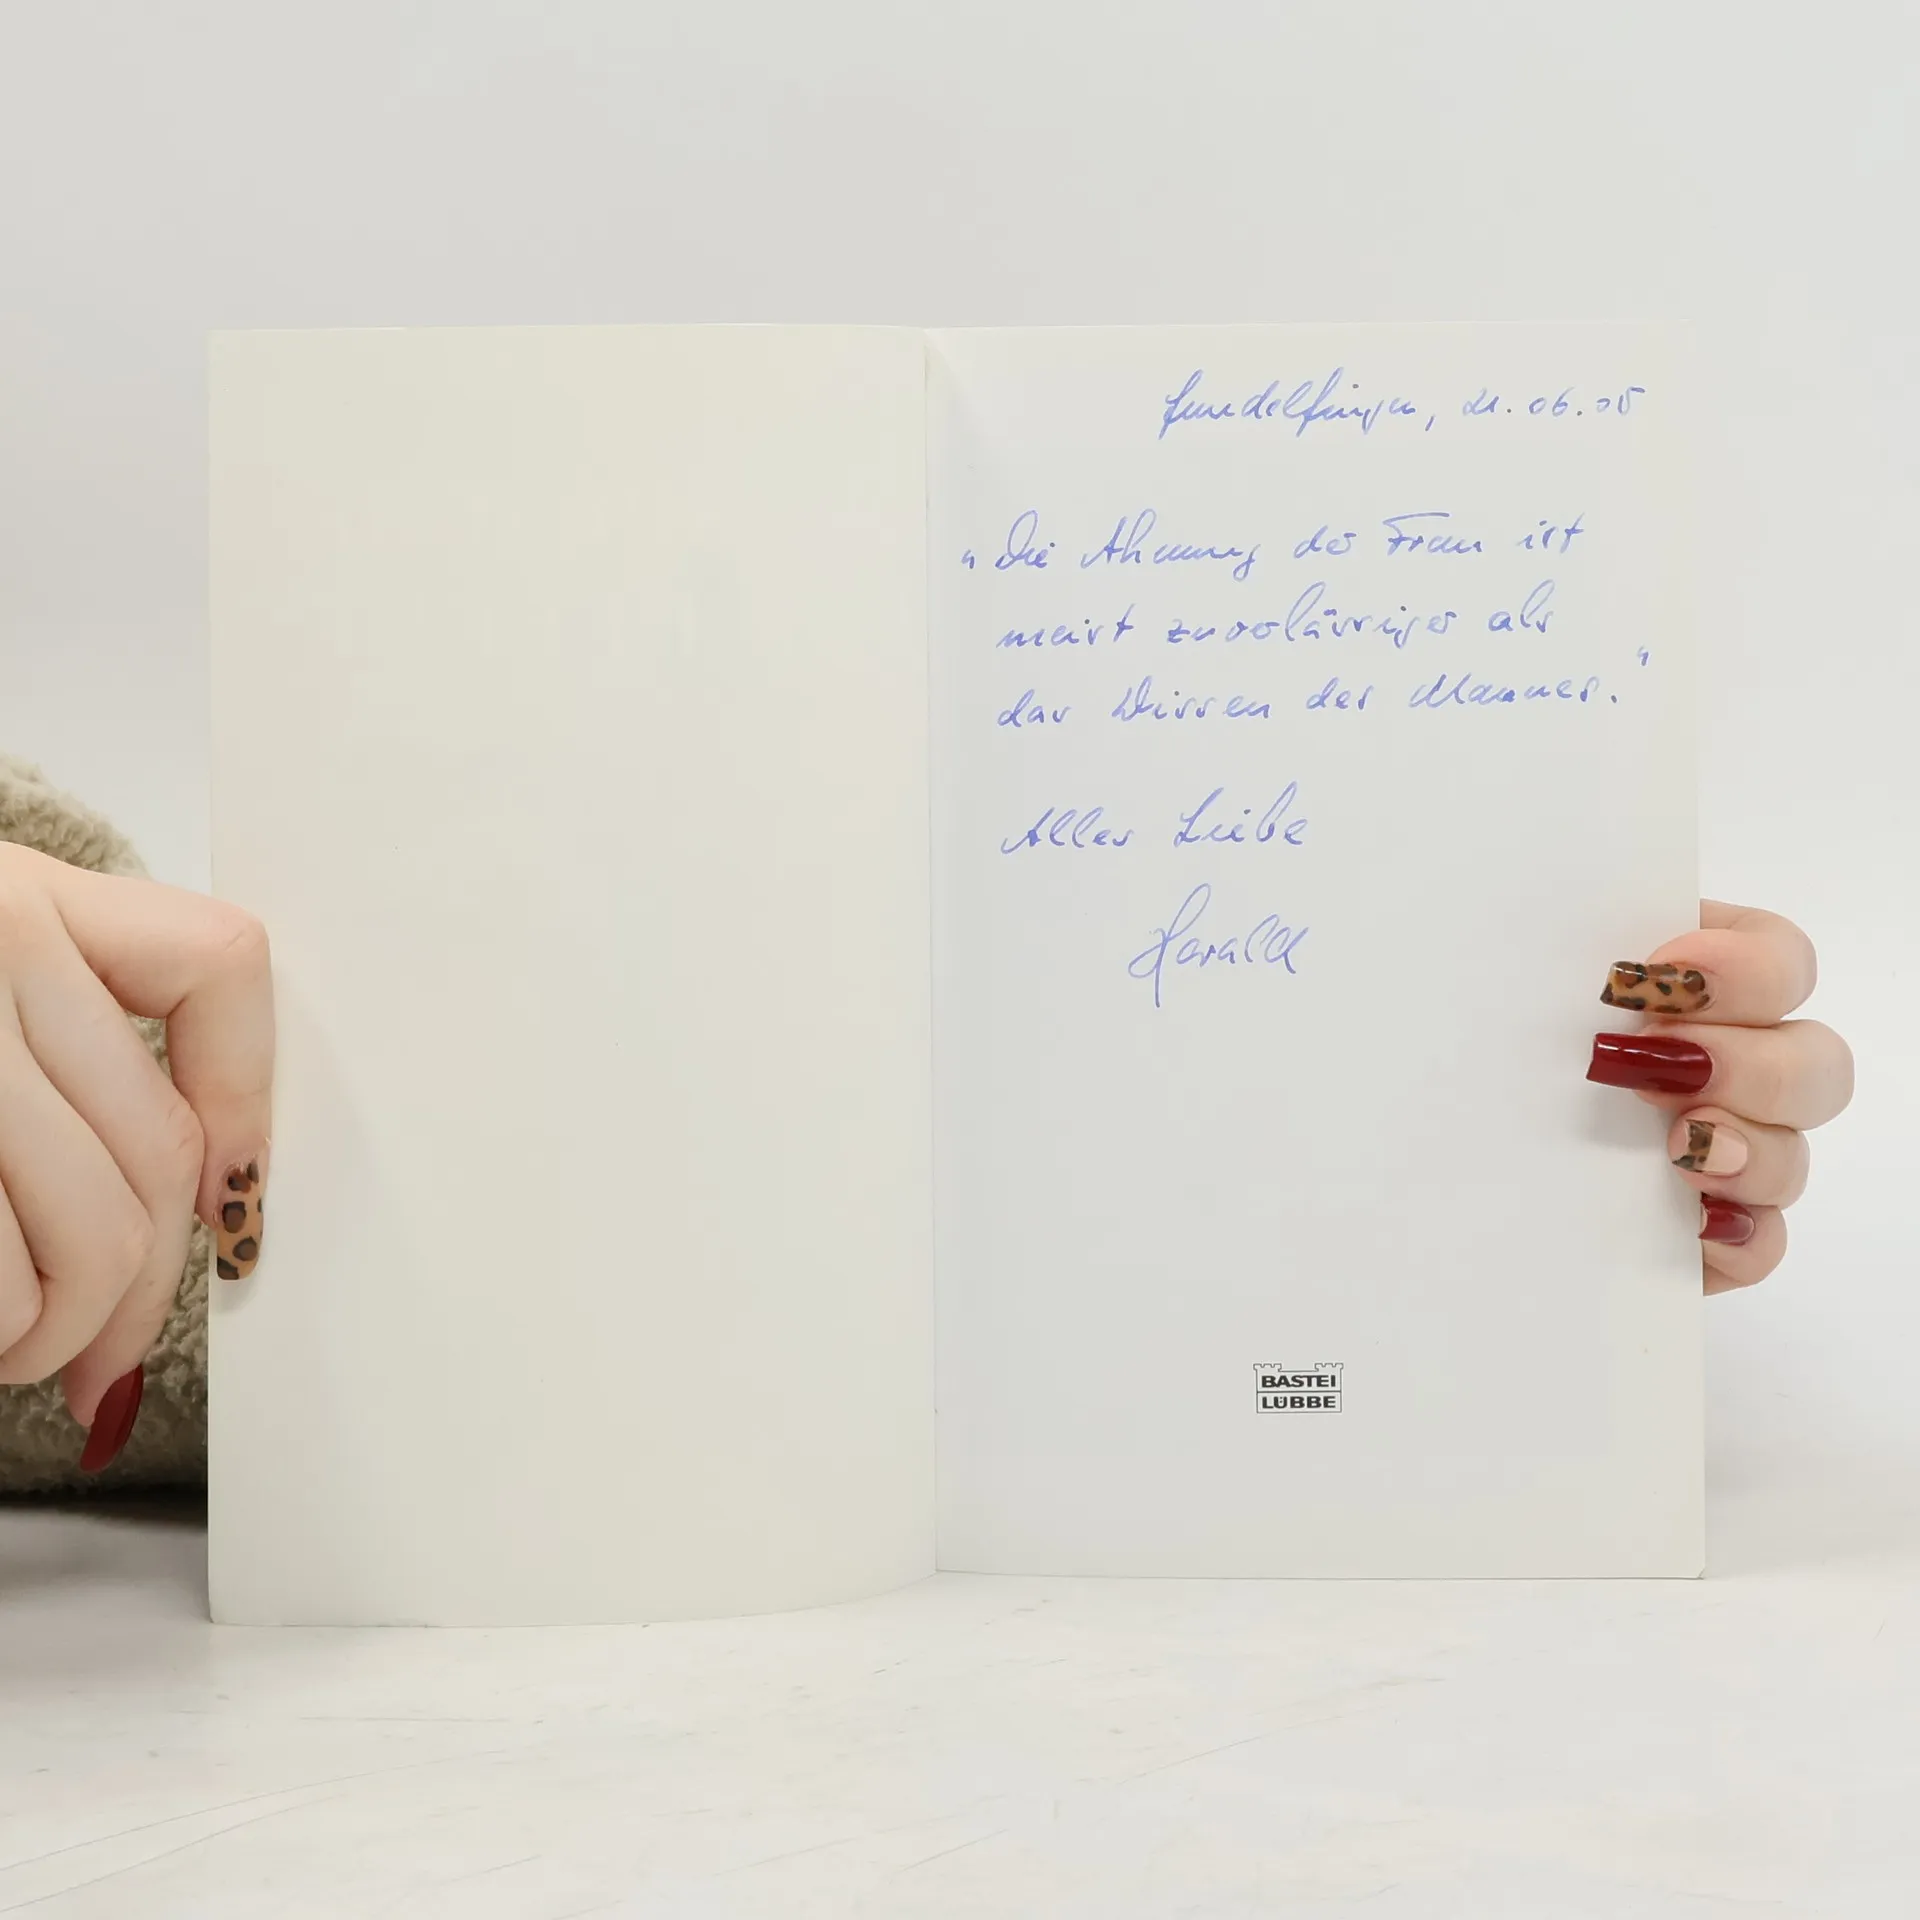 Gundelfingen, 21.06.05
„Die Ahnung der Frau ist
meist zuverlässiger als
das Wissen des Mannes.“
Alles Liebe
Harald
BASTEI
LÜBBE